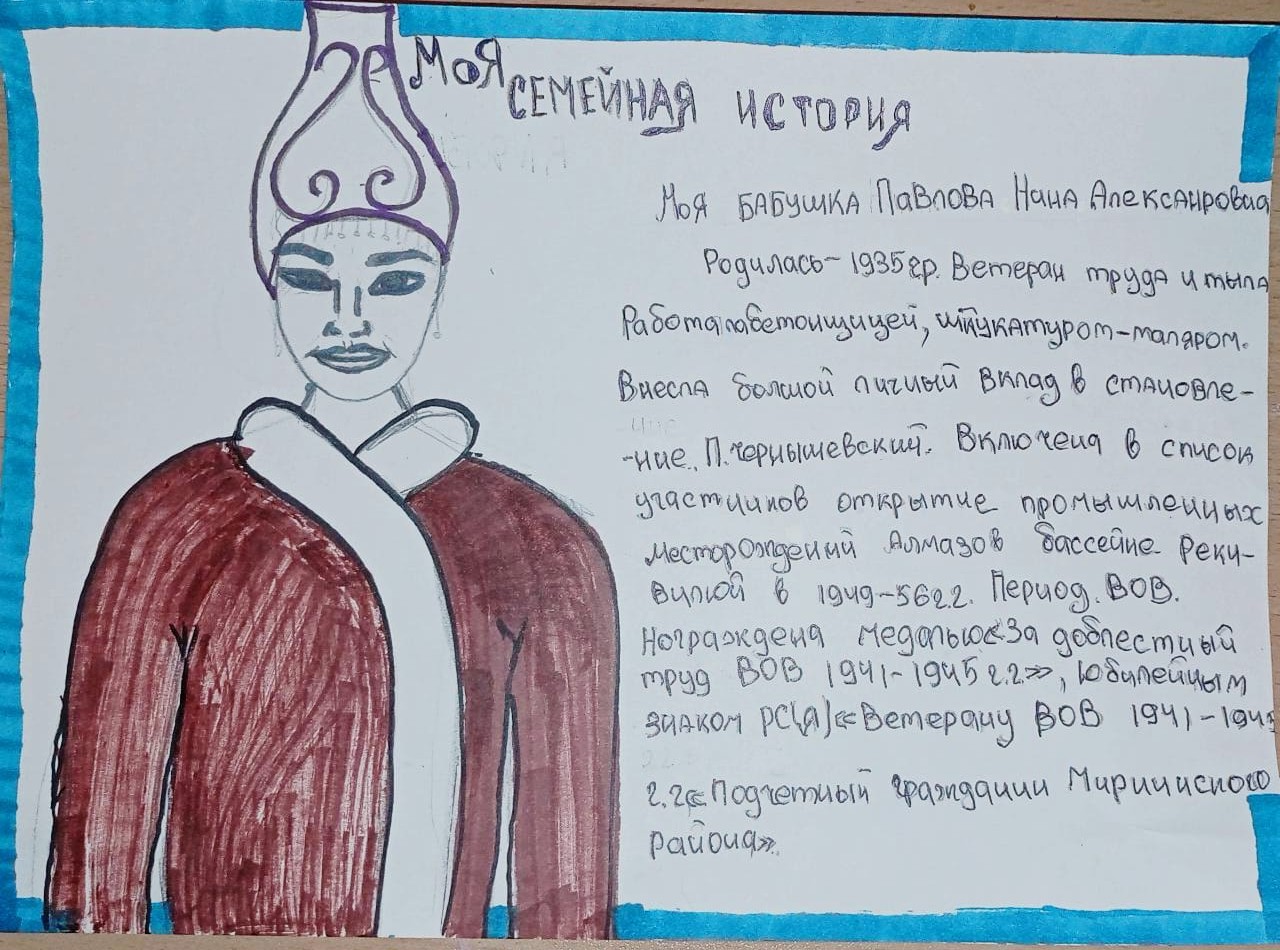 МОЯ
СЕМЕЙНАЯ ИСТОРИЯ
Моя БАБУШКА ПАВЛОВА НИНА АЛЕКСАНРОВНА
Родилась- 1935гр. Ветеран труда и тыла
Работала бетонщицей, штукатуром-маляром.
Внесла болшой личный вклад в становле-
-ние. П.Чернышевский. Включена в список
участников открытие промышленных
месторождений Алмазов бассейне реки-
вилюй в 1949-56г.г. Период. ВОВ.
Нограждена медалью «За доблестный
труд ВОВ 1941-1945 г.г», Юбилейным
знаком РС(Я) «Ветерану ВОВ 1941-1945
г.г «Подчетный гражданин Мирнинского
района».